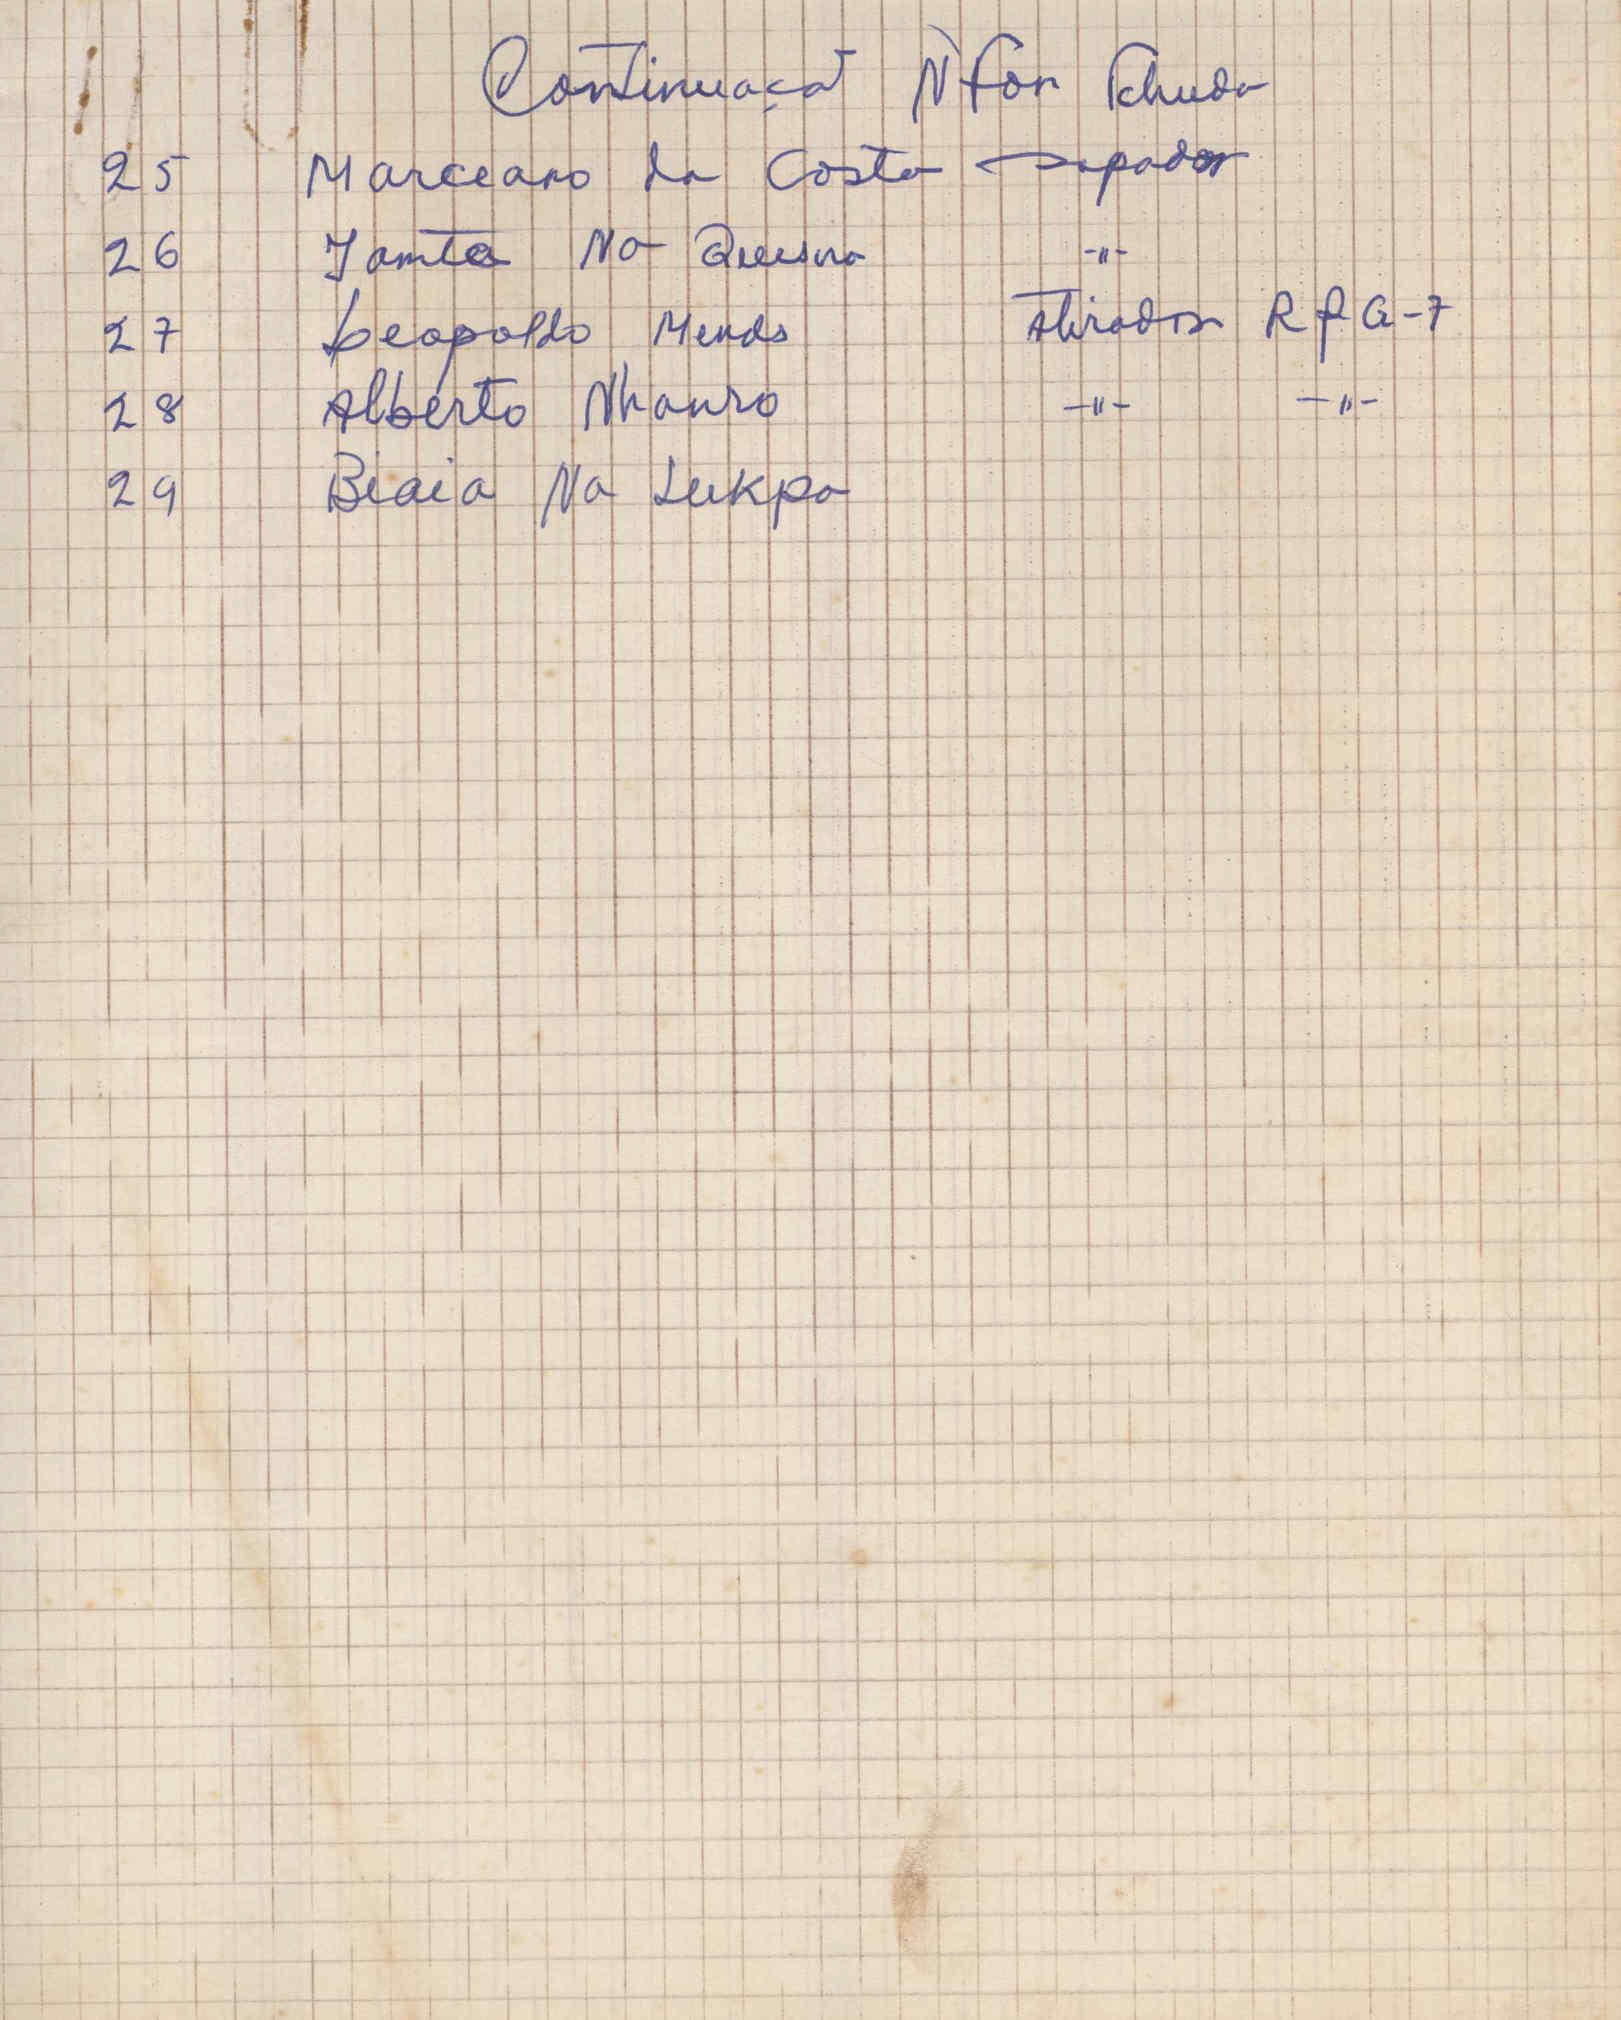 Continuaçaõ N'fon Tchuda
25 Marceano da Costa - Sapador
26 Tamta Na
27 Leopoldo Mends Atirador R P G-7
28 Alberto Nhanro -"- -"-
29 Biaia Na Lukpa